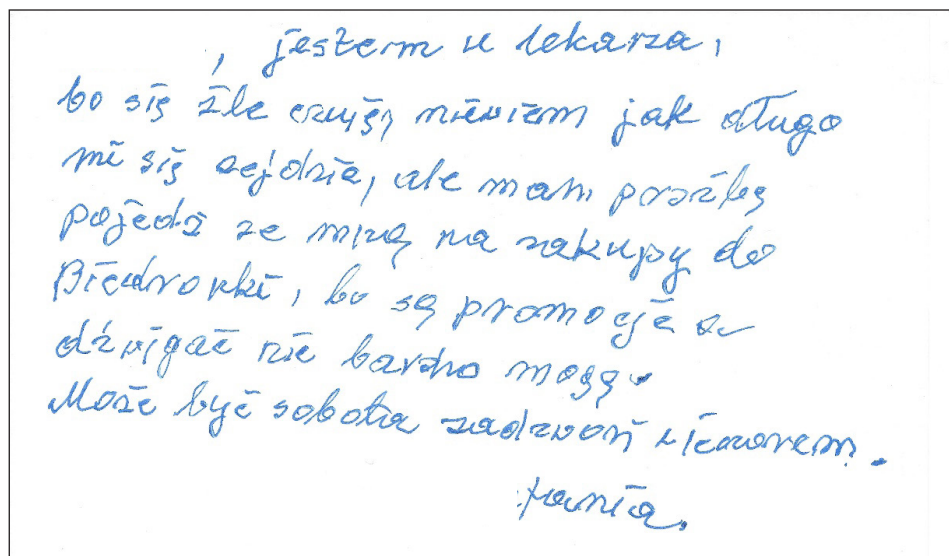 , jestem u lekarza,
bo się źle czuję, niewiem jak długo
mi się zejdzie, ale mam prośbę
pojedź ze mną na zakupy do
Biedronki, bo są promocje a
dźwigać nie bardzo mogę.
Może być sobota zadzwoń wieczorem.
Hania.